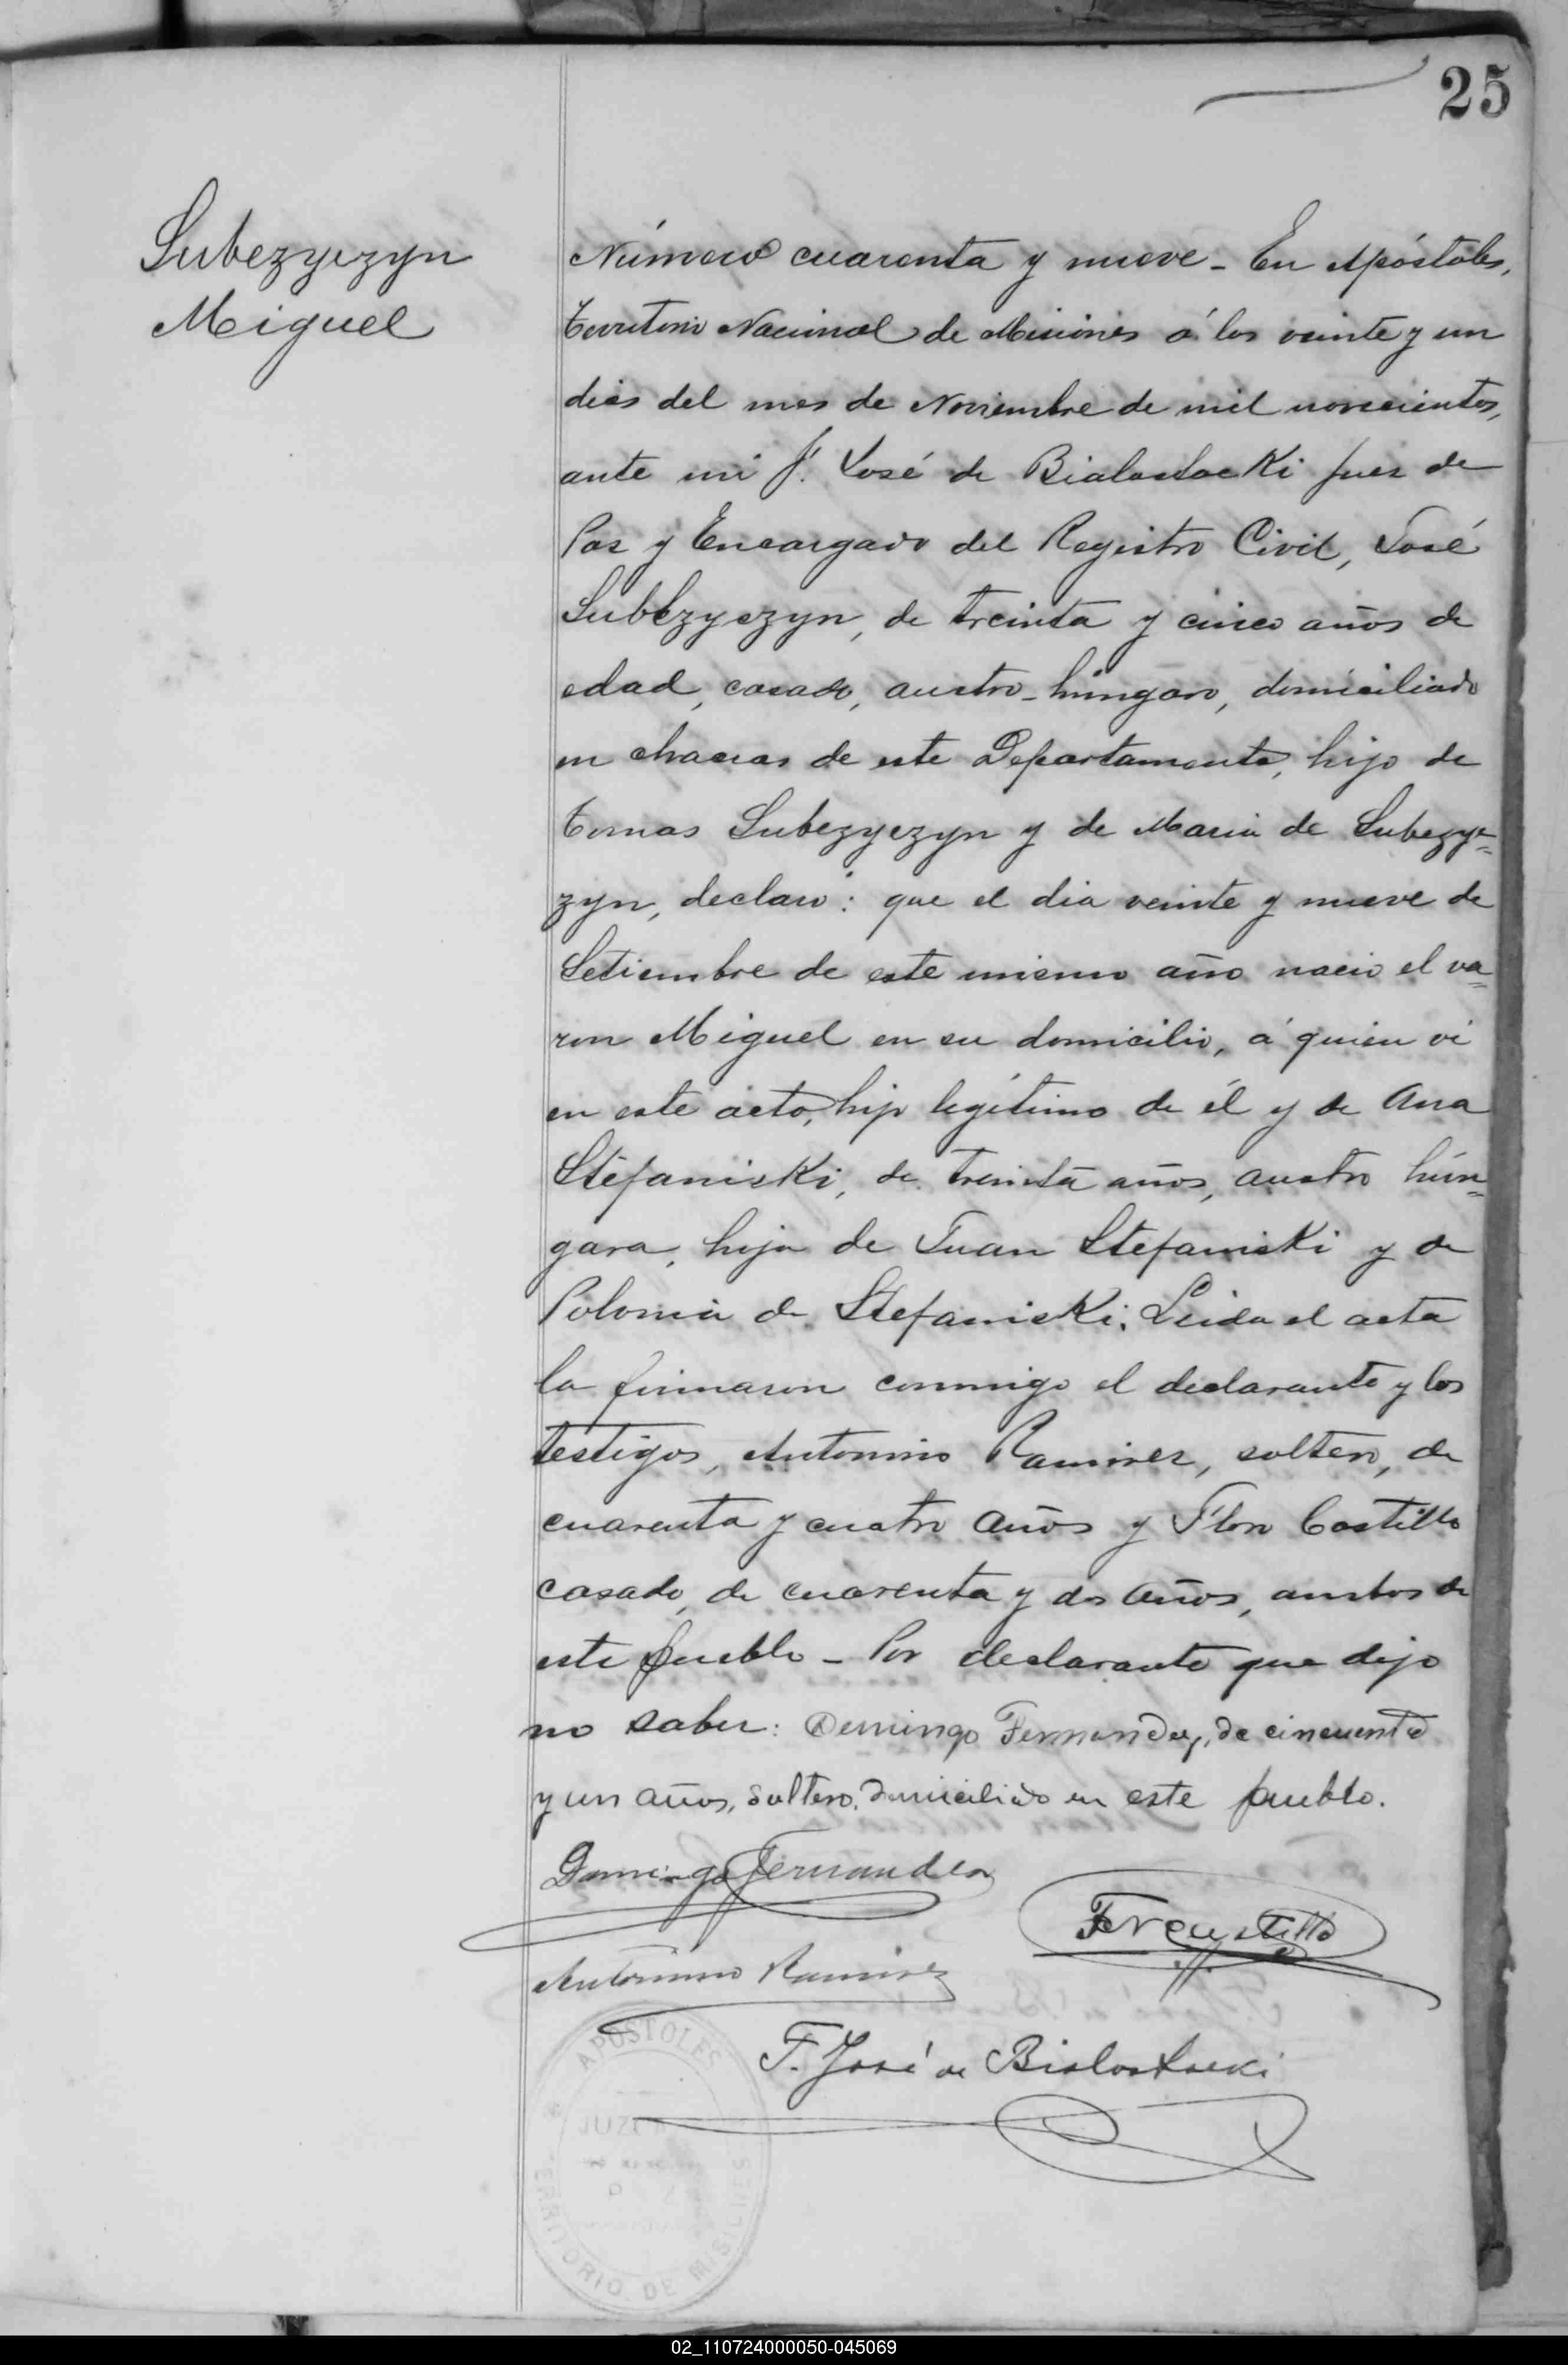 25
Subezyezyn
Miguel
Número cuarenta y nueve - En Apóstoles,
Territorio Nacional de Misiones á los veinte y un
dias del mes de Noviembre de mil novecientos,
ante mi F. José de Bialostocki Juez de
Paz y Encargado del Registro Civil, José
Subezyezyn, de treinta y cinco años de
edad, casado, austro-húngaro, domiciliado
en chacras de este Departamento, hijo de
Tomas Subezyezyn y de Maria de Subezye=
zyn, declaró: que el dia veinte y nueve de
Setiembre de este mismo año nació el va=
ron Miguel en su domicilio, á quien vi
en este acto, hijo legítimo de él y de Ana
Stefaniski, de treinta años, austro hún=
gara, hija de Juan Stefaniski y de
Polonia de Stefaniski. Leida el acta
la firmaron conmigo el declarante y los
testigos, Antonino Ramirez, soltero, de
cuarenta y cuatro años y Flor Castillo
casado, de cuarenta y dos años, ambos de
este pueblo - Por declarante que dijo
no saber: Domingo Fernandez, de cincuenta
y un años, soltero, domiciliado en este pueblo.
Domingo Fernandez
Antonino Ramirez
F. José de Bialostocki
APOSTOLES
TERRITORIO DE MISIONES
02_110724000050-045069